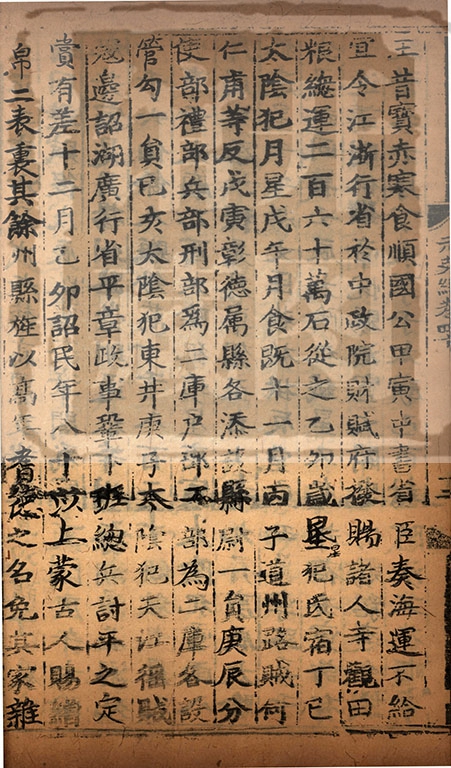 元史紀卷四十
王昔寶赤寒食順國公甲寅中書省臣奏海運不給
宜令江淅行省於中政院財賦府撥賜諸人寺觀田
粮總運二百六十萬石從之乙卯歲星犯氐宿丁巳
太陰犯月星戊午月食既十一月丙子道州路賊何
仁甫等反戊寅彰德属縣各添設縣尉一員庚辰分
使部禮部兵部刑部爲二庫户部工部為二庫各設
管勾一員已亥太陰犯東井庚子太陰犯天江徭賊
寇邊詔湖廣行省平章政事鞏卜班總兵討平之定
賞有差十二月乙卯詔民年八十以上蒙古人賜繒
帛二表裏其餘州縣旌以高年耆德之名免其家雜